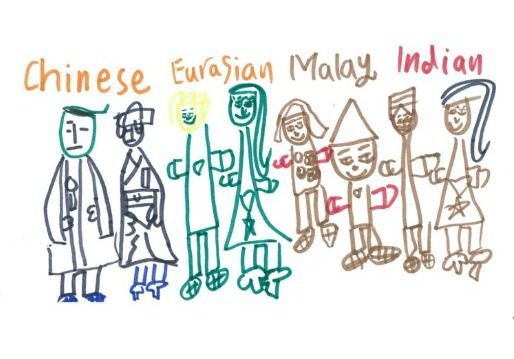 Chinese Eurasian Malay Indian